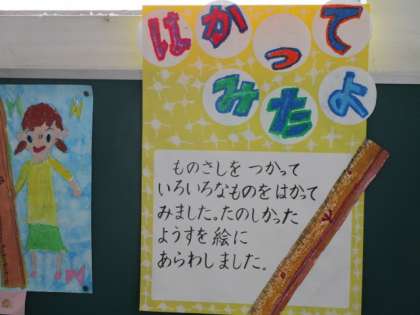 はかって
みたよ
ものさしを つかって
いろいろなものを はかって
みました。たのしかった
ようすを 絵に
あらわしました。